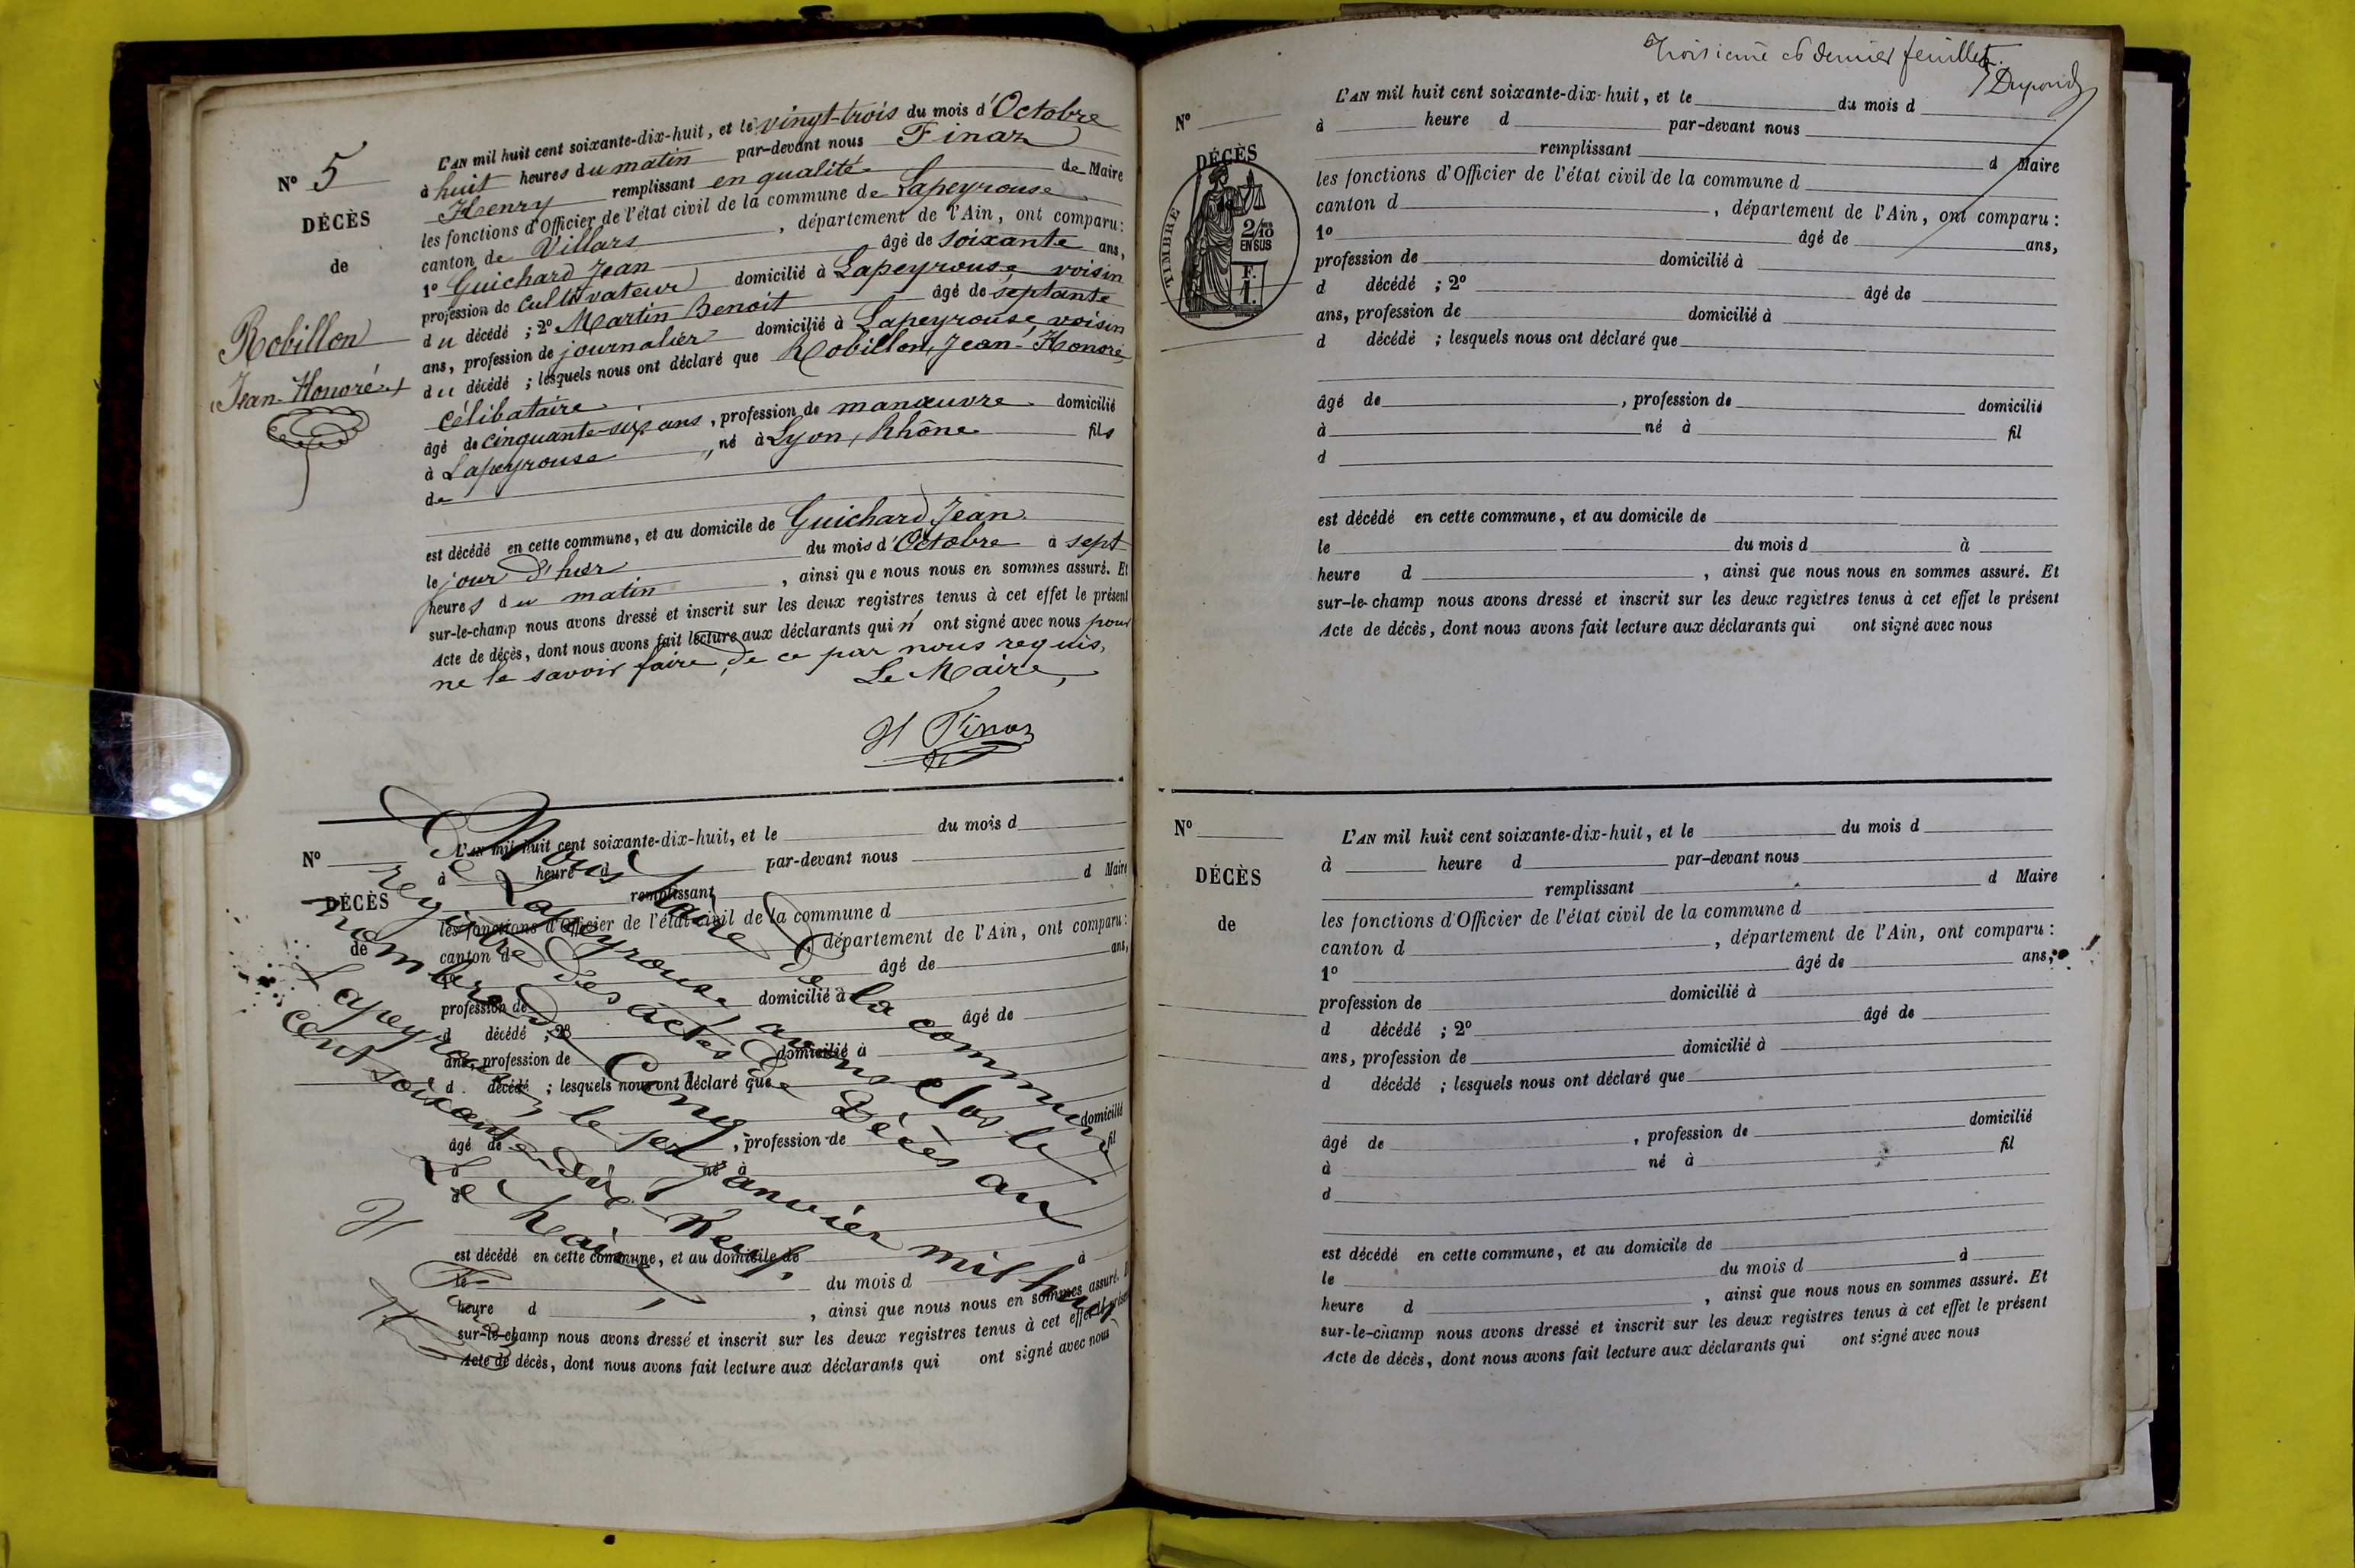 N° 5
DÉCÈS
de
Robillon
Jean-Honoré
L'AN mil huit cent soixante-dix-huit, et le vingt-trois du mois d'Octobre
à huit heures du matin par-devant nous Finaz
Henry remplissant en qualité de Maire
les fonctions d'Officier de l'état civil de la commune de Lapeyrouse
canton de Villars, département de l'Ain, ont comparu:
1° Guichard Jean âgé de soixante ans,
profession de cultivateur domicilié à Lapeyrouse voisin
du décédé ; 2° Martin Benoit âgé de septante
ans, profession de journalier domicilié à Lapeyrouse voisin
du décédé ; lesquels nous ont déclaré que Robillon, Jean-Honoré,
célibataire
âgé de cinquante-six ans, profession de manœuvre domicilié
à Lapeyrouse, né à Lyon, Rhône fils
de
est décédé en cette commune, et au domicile de Guichard Jean
le jour d'hier du mois d'Octobre à sept
heures du matin, ainsi que nous nous en sommes assuré. Et
sur-le-champ nous avons dressé et inscrit sur les deux registres tenus à cet effet le présent
Acte de décès, dont nous avons fait lecture aux déclarants qui n'ont signé avec nous pour
ne le savoir faire, de ce par nous requis,
Le Maire,
H Finaz
N°
DÉCÈS
de
L'AN mil huit cent soixante-dix-huit, et le du mois d
à heure d par-devant nous
remplissant d Maire
les fonctions d'Officier de l'état civil de la commune d
canton de , département de l'Ain, ont comparu:
âgé de ans,
profession de domicilié à
d décédé ; 2° âgé de
ans, profession de domicilié à
d décédé ; lesquels nous ont déclaré que
âgé de , profession de domicilié
né à fil
est décédé en cette commune, et au domicile de
le du mois d à
heure d , ainsi que nous nous en sommes assuré.
sur-le-champ nous avons dressé et inscrit sur les deux registres tenus à cet effet le présent
Acte de décès, dont nous avons fait lecture aux déclarants qui ont signé avec nous
Nous Maire de la commune
de Lapeyrouse avons clos le
registre des actes de Décès au
nombre de Cinq
Lapeyrouse le 1er Janvier mil huit
cent soixante-dix Neuf.
Le Maire,
H Finaz
Troisième et dernier feuillet.
Dupond
N°
DÉCÈS
TIMBRE
2/10
EN SUS
F.
I.
L'AN mil huit cent soixante-dix-huit, et le du mois d
à heure d par-devant nous
remplissant d Maire
les fonctions d'Officier de l'état civil de la commune d
canton d , département de l'Ain, ont comparu :
1° âgé de ans,
profession de domicilié à
d décédé ; 2° âgé de
ans, profession de domicilié à
d décédé ; lesquels nous ont déclaré que
âgé de , profession de domicilié
à né à fil
d
est décédé en cette commune, et au domicile de
le du mois d à
heure d , ainsi que nous nous en sommes assuré. Et
sur-le-champ nous avons dressé et inscrit sur les deux registres tenus à cet effet le présent
Acte de décès, dont nous avons fait lecture aux déclarants qui ont signé avec nous
N°
DÉCÈS
de
L'AN mil huit cent soixante-dix-huit, et le du mois d
à heure d par-devant nous
remplissant d Maire
les fonctions d'Officier de l'état civil de la commune d
canton d , département de l'Ain, ont comparu :
1° âgé de ans,
profession de domicilié à
d décédé ; 2° âgé de
ans, profession de domicilié à
d décédé ; lesquels nous ont déclaré que
âgé de , profession de domicilié
à né à fil
d
est décédé en cette commune, et au domicile de
le du mois d à
heure d , ainsi que nous nous en sommes assuré. Et
sur-le-champ nous avons dressé et inscrit sur les deux registres tenus à cet effet le présent
Acte de décès, dont nous avons fait lecture aux déclarants qui ont signé avec nous